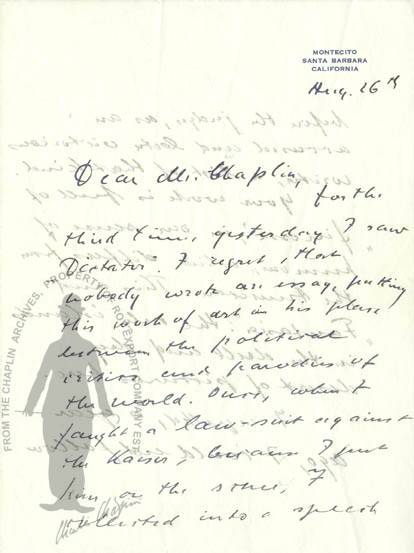 MONTECITO
SANTA BARBARA
CALIFORNIA
Aug. 26th
Dear Mr. Chaplin,
for the
third time, yesterday I saw
Dictator". I regret, that
nobody wrote an essay putting
this work of art in his place
between the political
and parodies of
the world. Once, when I
faught a law-suit against
the Kaiser, because I put
him on the stage, I
into a speech
FROM THE CHAPLIN ARCHIVES. PROPERTY OF ROY EXPORT COMPANY EST.
Charlie Chaplin